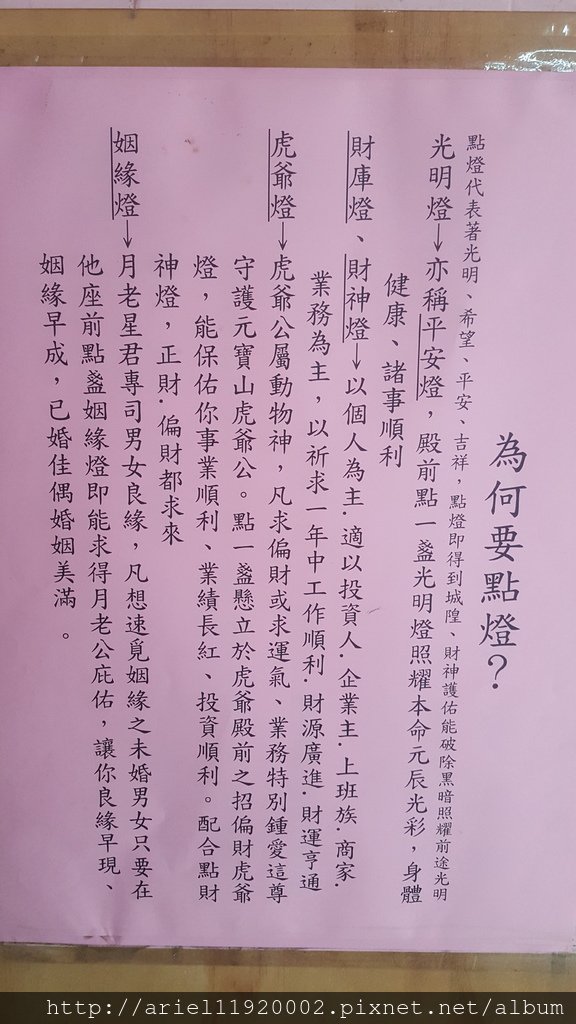 為何要點燈？
點燈代表著光明、希望、平安、吉祥，點燈即得到城隍、財神護佑能破除黑暗照耀前途光明
光明燈→亦稱平安燈，殿前點一盞光明燈照耀本命元辰光彩，身體
健康、諸事順利
財庫燈、財神燈→以個人為主.適以投資人.企業主.上班族.商家.
業務為主，以祈求一年中工作順利.財源廣進.財運亨通
虎爺燈→虎爺公屬動物神，凡求偏財或求運氣、業務特別鍾愛這尊
守護元寶山虎爺公。點一盞懸立於虎爺殿前之招偏財虎爺
燈，能保佑你事業順利、業績長紅、投資順利。配合點財
神燈，正財.偏財都求來
姻緣燈→月老星君專司男女良緣，凡想速覓姻緣之未婚男女只要在
他座前點盞姻緣燈即能求得月老公庇佑，讓你良緣早現、
姻緣早成，已婚佳偶婚姻美滿。
http://ariel11920002.pixnet.net/album